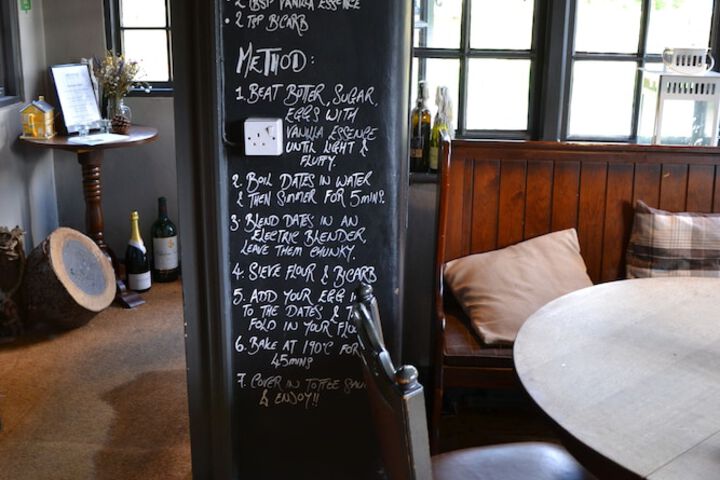 2 tbsp VANILLA ESSENCE
• 2 TSP BICARB
METHOD:
1. BEAT BUTTER, SUGAR,
EGGS WITH
VANILLA ESSENCE
UNTIL LIGHT &
FLUFFY.
2. BOIL DATES IN WATER
& THEN SIMMER FOR 5 mins.
3. BLEND DATES IN AN
ELECTRIC BLENDER,
LEAVE THEM CHUNKY.
4. SIEVE FLOUR & BICARB
5. ADD YOUR EGG
TO THE DATES &
FOLD IN YOUR
6. BAKE AT 190°C FOR
45 mins
7. COVER IN TOFFEE
& ENJOY!!